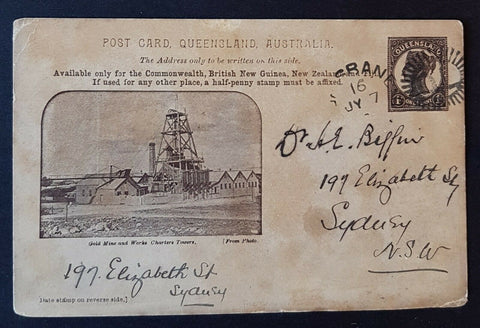 POST CARD, QUEENSLAND, AUSTRALIA.
The Address only to be written on this side.
Available only for the Commonwealth, British New Guinea, New Zealand and Fiji.
If used for any other place, a half-penny stamp must be affixed.
QUEENSLAND
1D
16
JY 7
Dr A.E.
197 Elizabeth St
Sydney
N.S.W
Gold Mine and Works Charters Towers.
[From Photo.
197. Elizabeth St
Sydney
Date stamp on reverse side.]